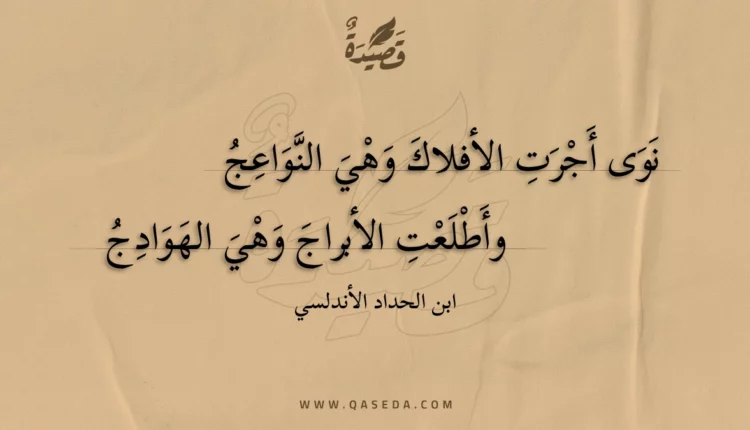 قَصِيْدَةٌ
نَوَى أَجْرَتِ الأفلاكَ وَهْيَ النَّوَاعِجُ
وأَطْلَعْتِ الأبراجَ وَهْيَ الهَوَادِجُ
ابن الحداد الأندلسي
WWW.QASEDA.COM